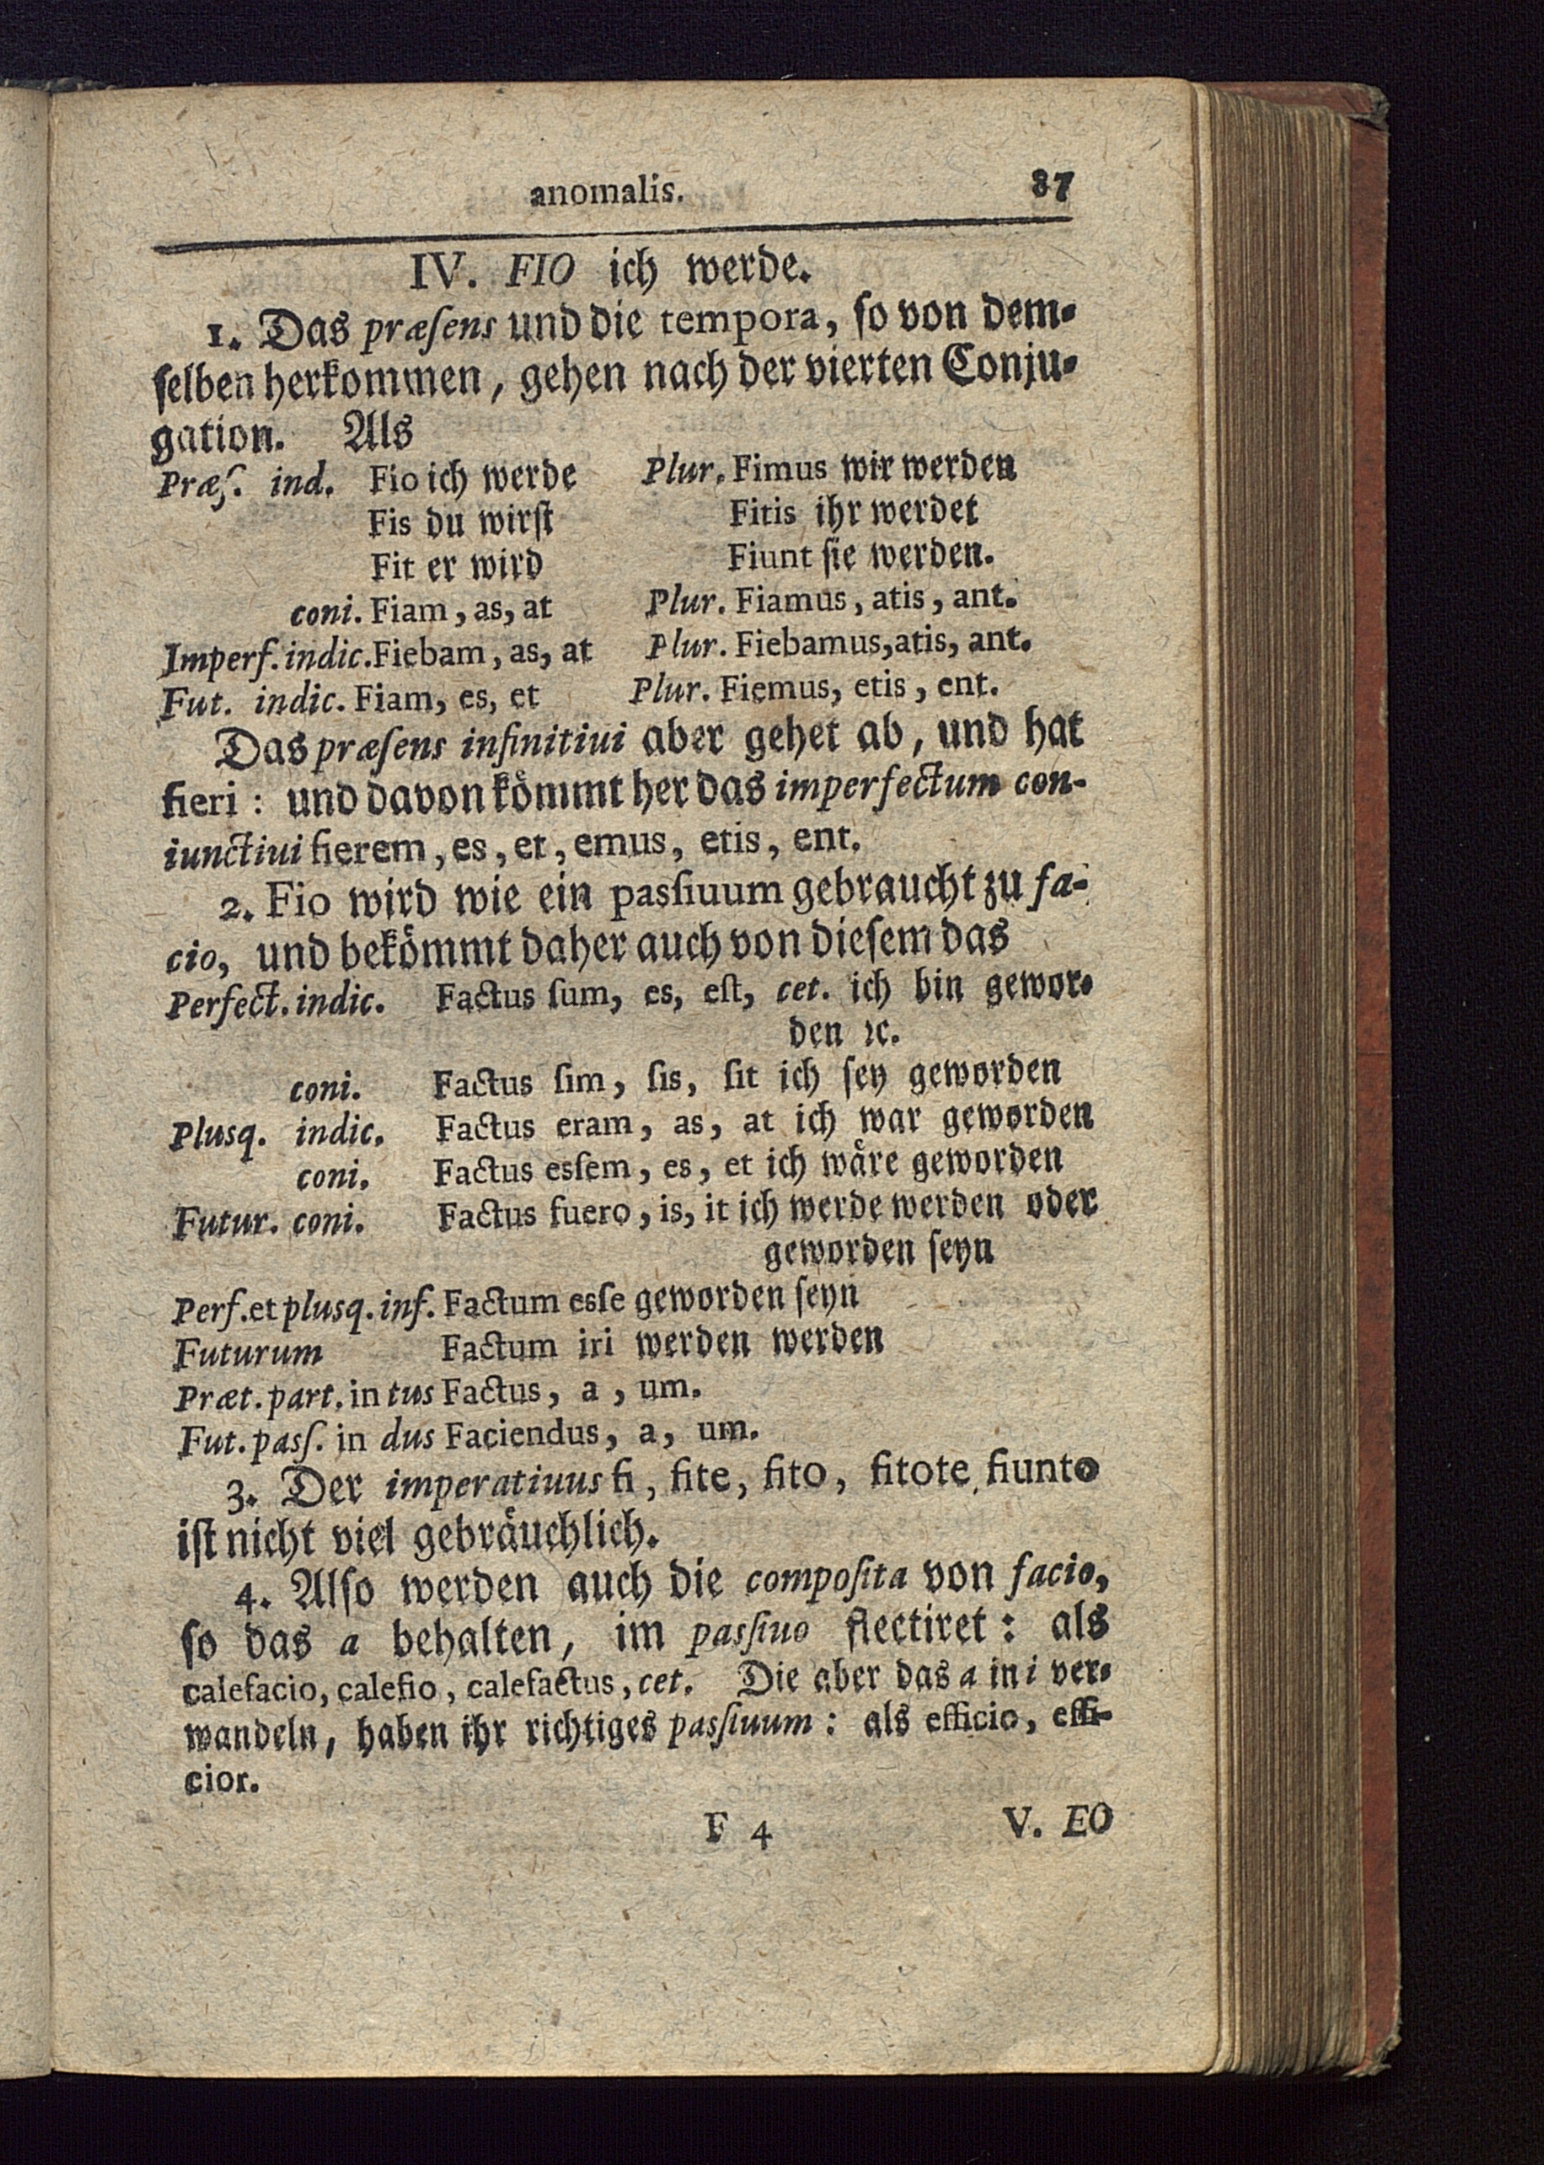 anomalis. 87
IV. FIO ich werde.
1. Das præſens und die tempora, ſo von dem-
ſelben herkommen, gehen nach der vierten Conju-
gation. Als
Præſ. ind. Fio ich werde Plur. Fimus wir werden
Fis du wirſt Fitis ihr werdet
Fit er wird Fiunt ſie werden.
coni. Fiam, as, at Plur. Fiamus, atis, ant.
Imperf. indic. Fiebam, as, at Plur. Fiebamus, atis, ant.
Fut. indic. Fiam, es, et Plur. Fiemus, etis, ent.
Das præſens infinitiui aber gehet ab, und hat
fieri: und davon kömmt her das imperfectum con-
iunctiui fierem, es, et, emus, etis, ent.
2. Fio wird wie ein pasſiuum gebraucht zu fa-
cio, und bekömmt daher auch von dieſem das
Perfect. indic. Factus ſum, es, eſt, cet. ich bin gewor-
den ꝛc.
coni. Factus ſim, ſis, ſit ich ſey geworden
Plusq. indic. Factus eram, as, at ich war geworden
coni. Factus esſem, es, et ich wäre geworden
Futur. coni. Factus fuero, is, it ich werde werden oder
geworden ſeyn
Perf. et plusq. inf. Factum esſe geworden ſeyn
Futurum Factum iri werden werden
Præt. part. in tus Factus, a, um.
Fut. pasſ. in dus Faciendus, a, um.
3. Der imperatiuus fi, fite, fito, fitote, fiunto
iſt nicht viel gebräuchlich.
4. Alſo werden auch die compoſita von facio,
ſo das a behalten, im pasſiuo flectiret: als
calefacio, calefio, calefactus, cet. Die aber das a in i ver-
wandeln, haben ihr richtiges pasſiuum: als efficio, effi-
cior.
F 4 V. EO